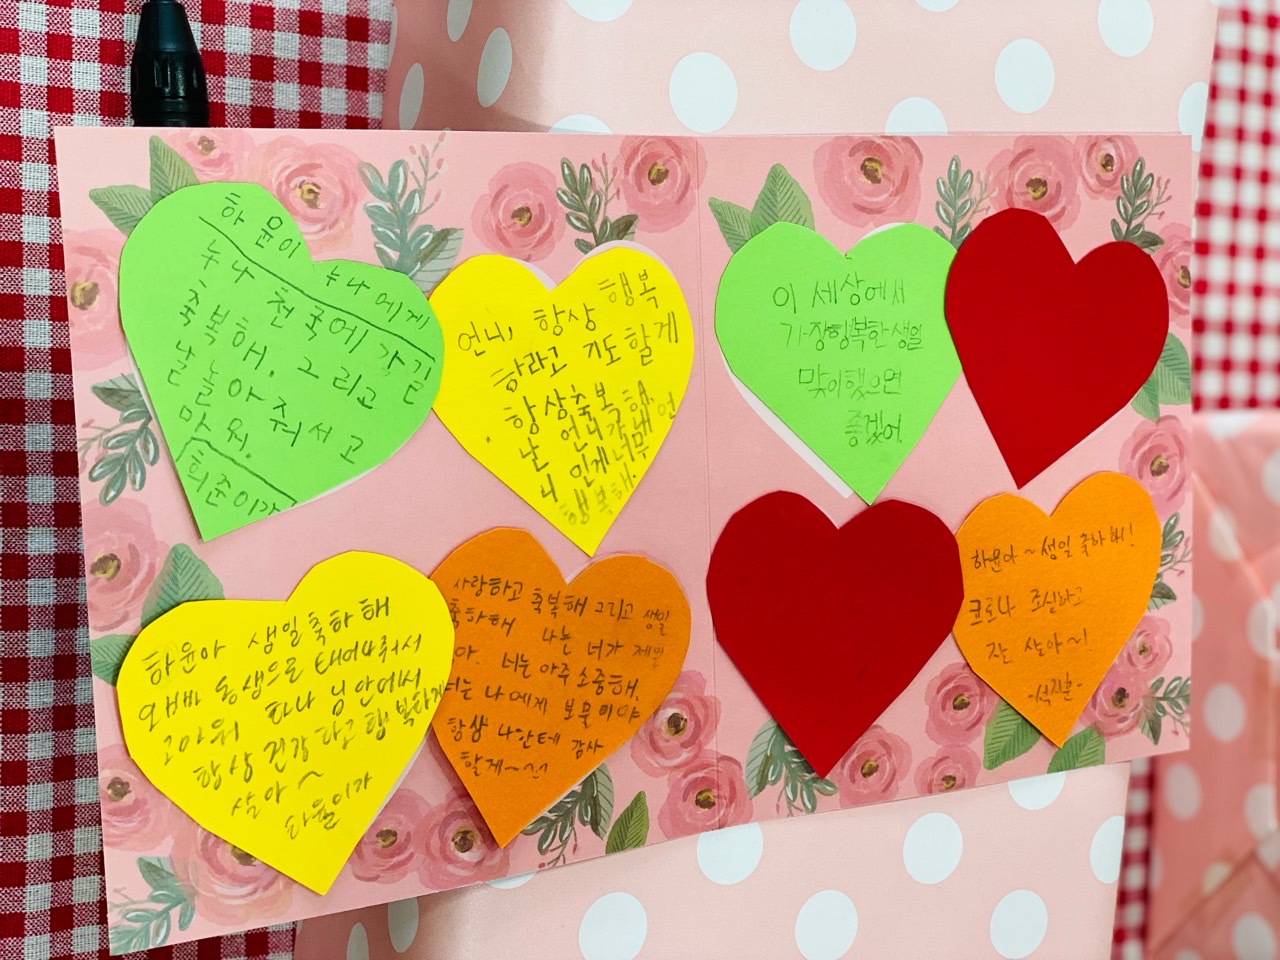 하윤이 누나에게
누나 천국에 가길
축복해. 그리고
날 놀아줘서 고
마워.
희준이가
언니, 항상 행복
하라고 기도할게
항상축복해.
난 언니가 내 언
니 인게 너무
행복해.
이 세상에서
가장행복한생일
맞이했으면
좋겠어.
하윤아 생일축하해
오빠 동생으로 태어나줘서
고마워 하나님안에서
항상 건강하고 행복하게
살아~
하율이가
사랑하고 축복해 그리고 생일
축하해 나는 너가 제일
아. 너는 아주 소중해.
너는 나에게 보물이야
항상 나한테 감사
할게~
하윤아~생일 축하해!
코로나 조심하고
잘 살아~!
-석진혼-